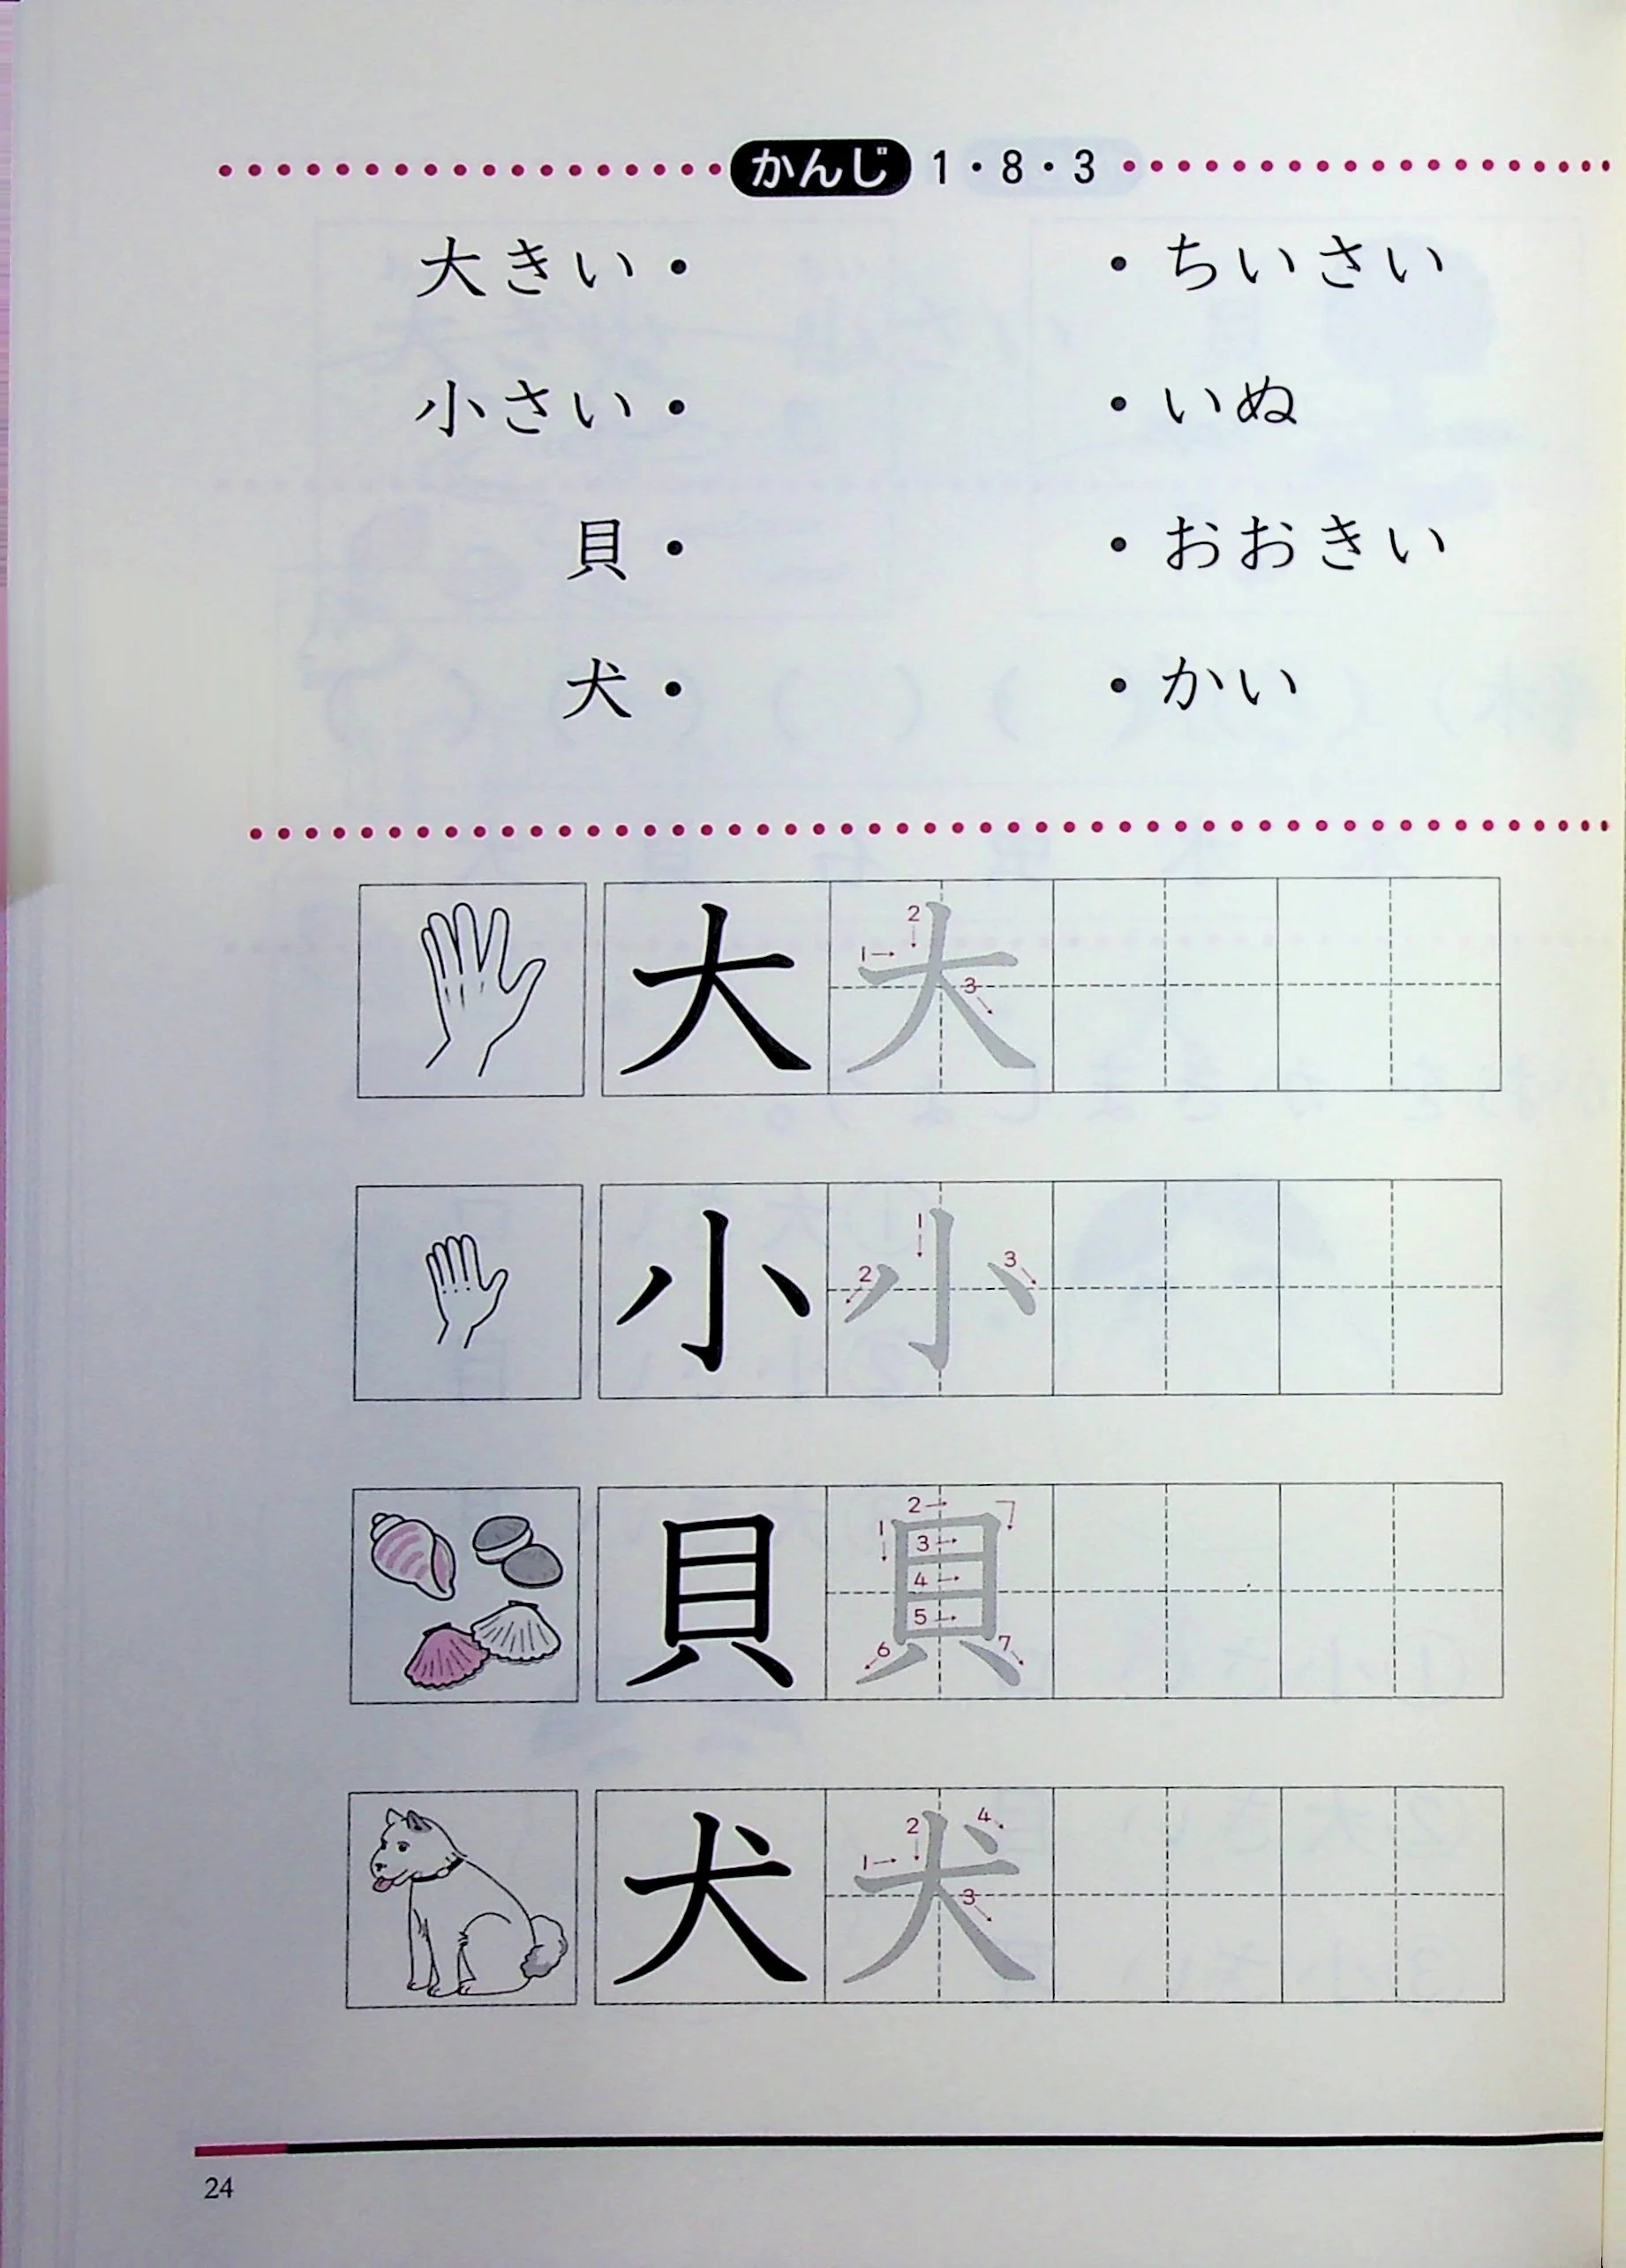 かんじ 1・8・3
大きい・ ・ちいさい
小さい・ ・いぬ
貝・ ・おおきい
犬・ ・かい
大 大 1 2 3
小 小 1 2 3
貝 貝 1 2 3 4 5 6 7
犬 犬 1 2 3 4
24